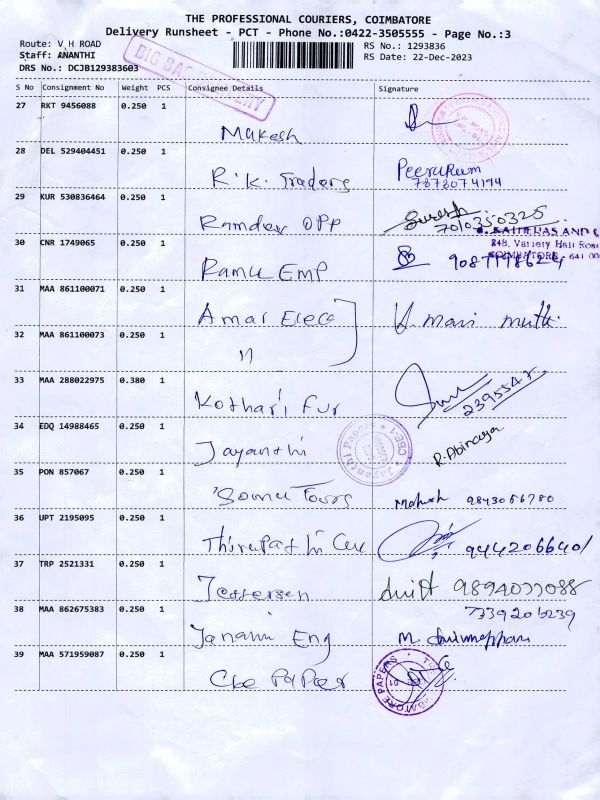 THE PROFESSIONAL COURIERS, COIMBATORE
Delivery Runsheet - PCT - Phone No.:0422-3505555 - Page No.:3
Route: V H ROAD
Staff: ANANTHI
DRS No.: DCJB129383603
RS No.: 1293836
RS Date: 22-Dec-2023
BIG BAG DELIVERY
S No Consignment No Weight PCS Consignee Details Signature
27 RKT 9456088 0.250 1
Makesh
28 DEL 529404451 0.250 1
R.K. Traders
7878074194
29 KUR 530836464 0.250 1
Ramdev OPP
Suresh
7010350325
30 CNR 1749065 0.250 1
Ramu EMP
248, Variety Hall Road
COIMBATORE - 641 00
31 MAA 861100071 0.250 1
Amar Elece
V. mari muthu
32 MAA 861100073 0.250 1
"
33 MAA 288022975 0.380 1
Kothari Fur
2395542
34 EDQ 14988465 0.250 1
Jayanthi
Jayanthi Papers * CBE-1 *
R. Abinaya
35 PON 857067 0.250 1
Somu Tours
Mahesh 9843056780
36 UPT 2195095 0.250 1
Thirupathi
9442066401
37 TRP 2521331 0.250 1
Jeffersen
9894077088
38 MAA 862675383 0.250 1
Janani Eng
7339205239
39 MAA 571959087 0.250 1
Cbe Paper